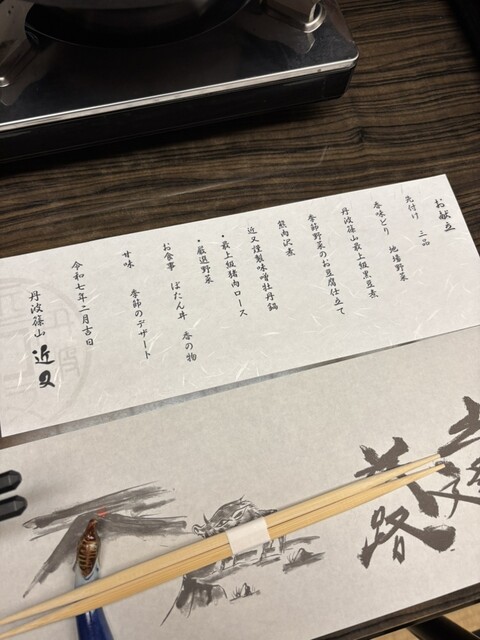 お献立
先付け 三品
香味どり 地場野菜
丹波篠山最上級黒豆煮
季節野菜のお豆腐仕立て
熊肉沢煮
近又謹製味噌牡丹鍋
・最上級猪肉ロース
・厳選野菜
お食事 ぼたん丼 香の物
甘味 季節のデザート
令和七年二月吉日
丹波篠山 近又